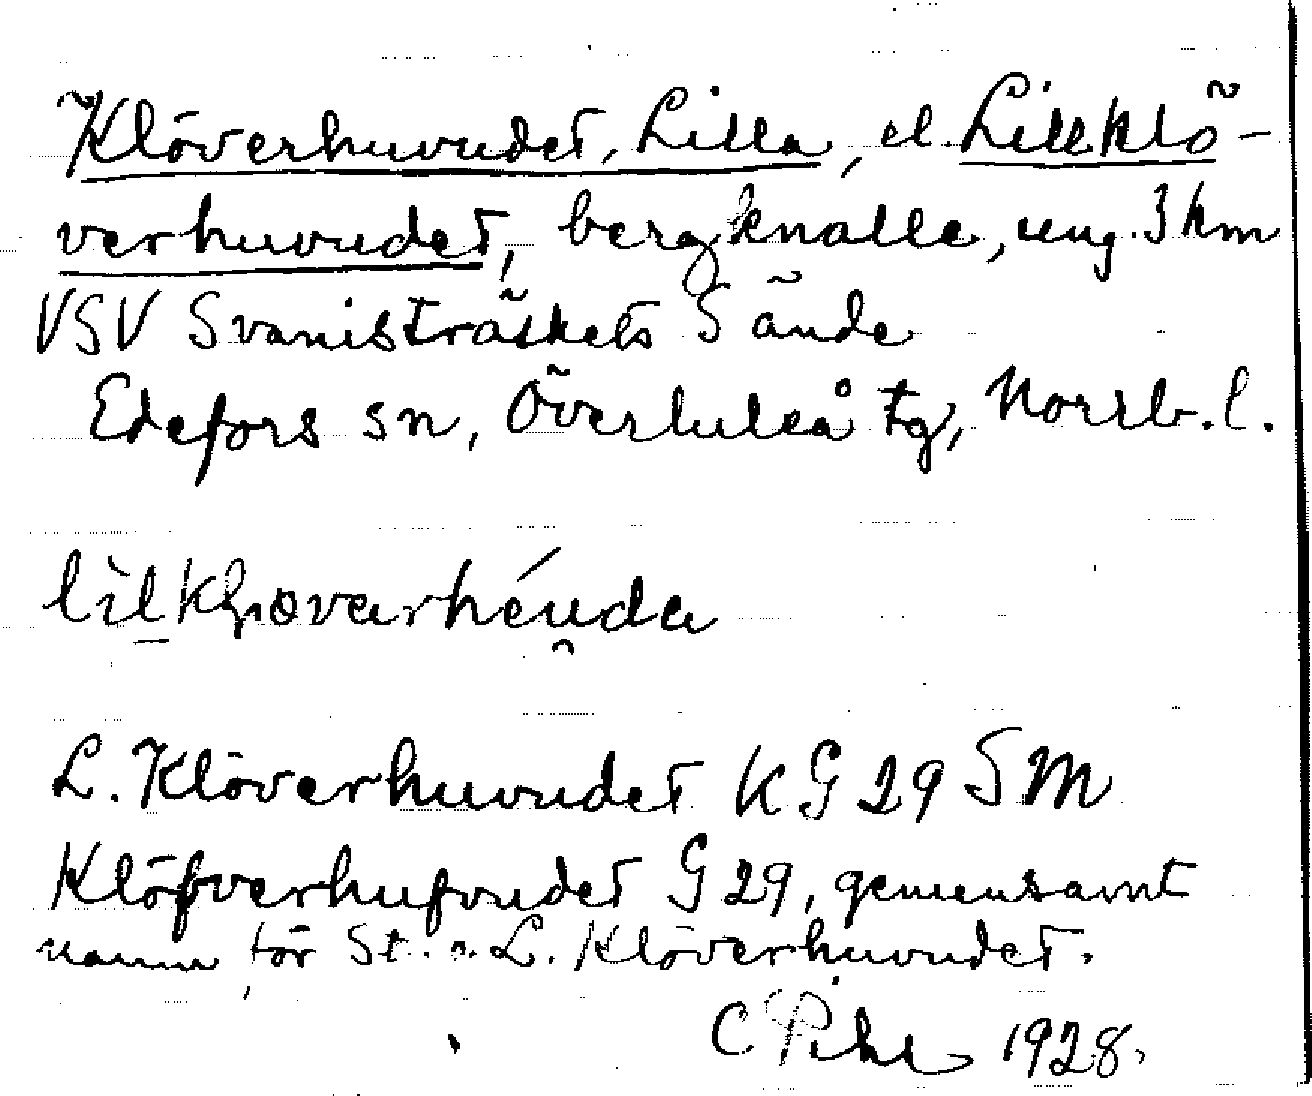 Klöverhuvudet, Lilla, el. Lillklö-
verhuvudet, bergknalle, ung. 3 km
VSV Svanisträskets S ände
Edefors sn, Överluleå tg, Norrb. l.
L. Klöverhuvudet KG 29 SM
Klöfverhufvudet G 29, gemensamt
namn för St. o. L. Klöverhuvudet.
C Pihl 1928.